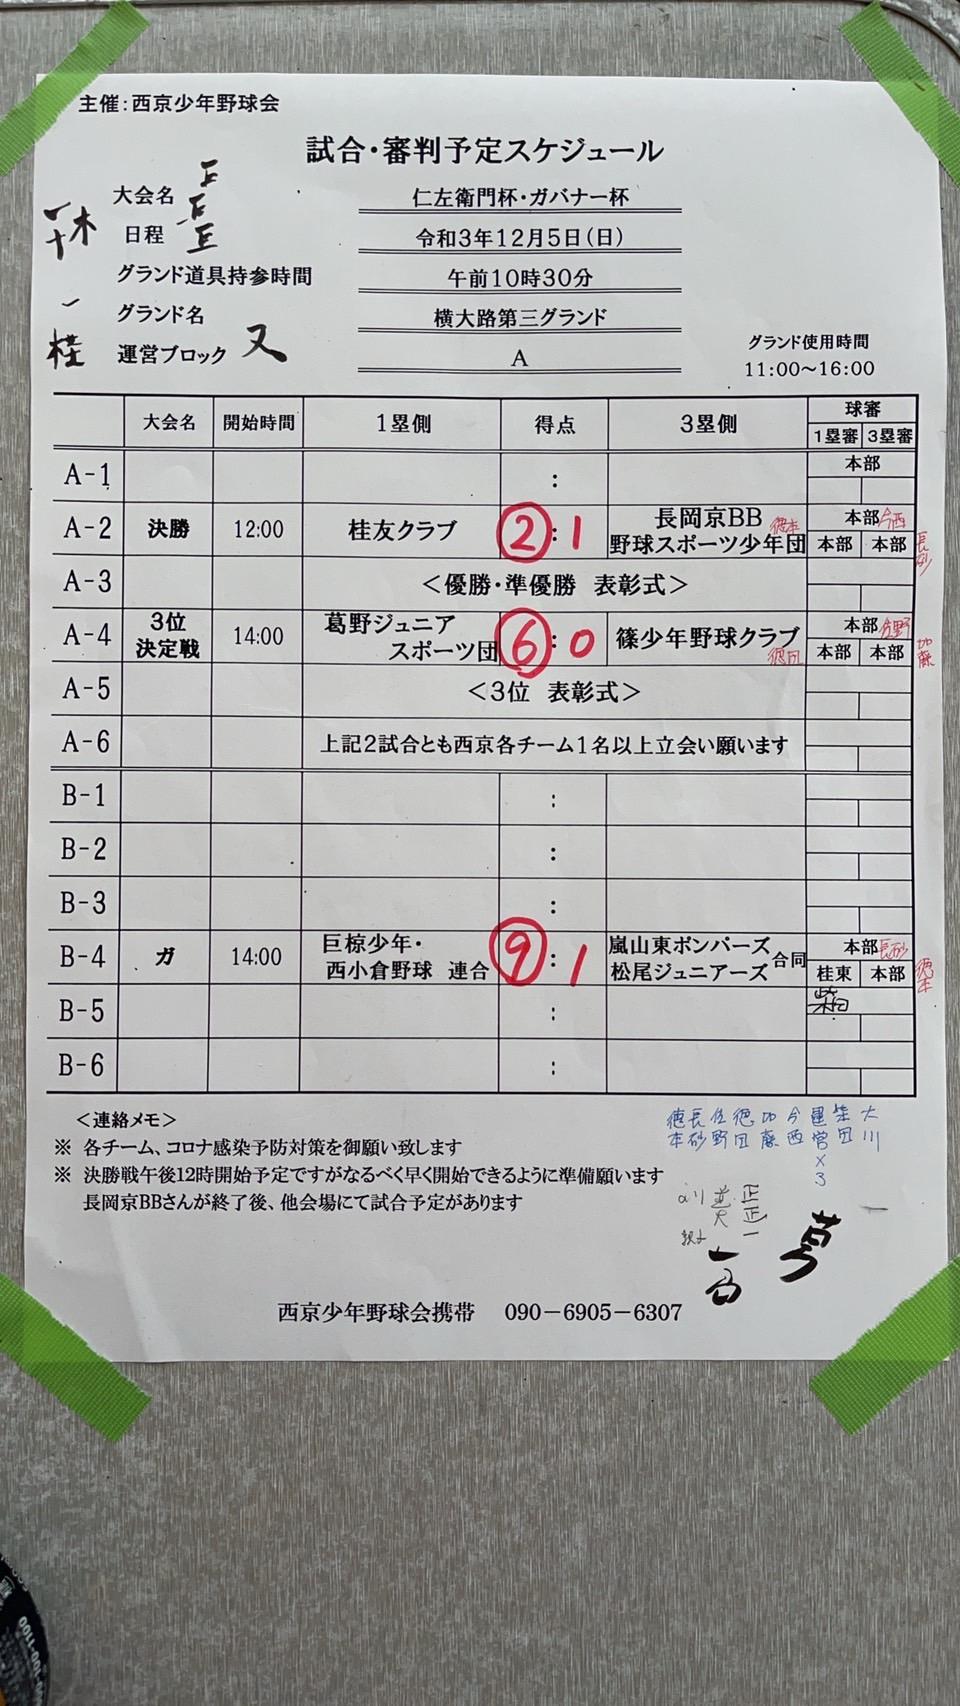 主催:西京少年野球会
試合・審判予定スケジュール
大会名 仁左衛門杯・ガバナー杯
日程 令和3年12月5日(日)
グランド道具持参時間 午前10時30分
グランド名 横大路第三グランド
桂 運営ブロック 又 A
グランド使用時間
11:00～16:00
大会名 開始時間 1塁側 得点 3塁側 球審
1塁審 3塁審
A-1 : 本部
A-2 決勝 12:00 桂友クラブ ②:1 長岡京BB 本部 今西
野球スポーツ少年団 徳本 本部 本部 長砂
A-3 <優勝・準優勝 表彰式>
A-4 3位 14:00 葛野ジュニア ⑥:0 篠少年野球クラブ 本部
決定戦 スポーツ団 徳田 本部 本部 加藤
A-5 <3位 表彰式>
A-6 上記2試合とも西京各チーム1名以上立会い願います
B-1 :
B-2 :
B-3 :
B-4 ガ 14:00 巨椋少年・ ⑨:1 嵐山東ボンバーズ 合同 本部 長砂
西小倉野球 連合 松尾ジュニアーズ 桂東 本部 徳本
柴田
B-5 :
B-6 :
<連絡メモ>
※ 各チーム、コロナ感染予防対策を御願い致します
※ 決勝戦午後12時開始予定ですがなるべく早く開始できるように準備願います
長岡京BBさんが終了後、他会場にて試合予定があります
大川
柴田
運営×3
今西
加藤
徳田
佐野
長砂
徳本
西京少年野球会携帯 090-6905-6307